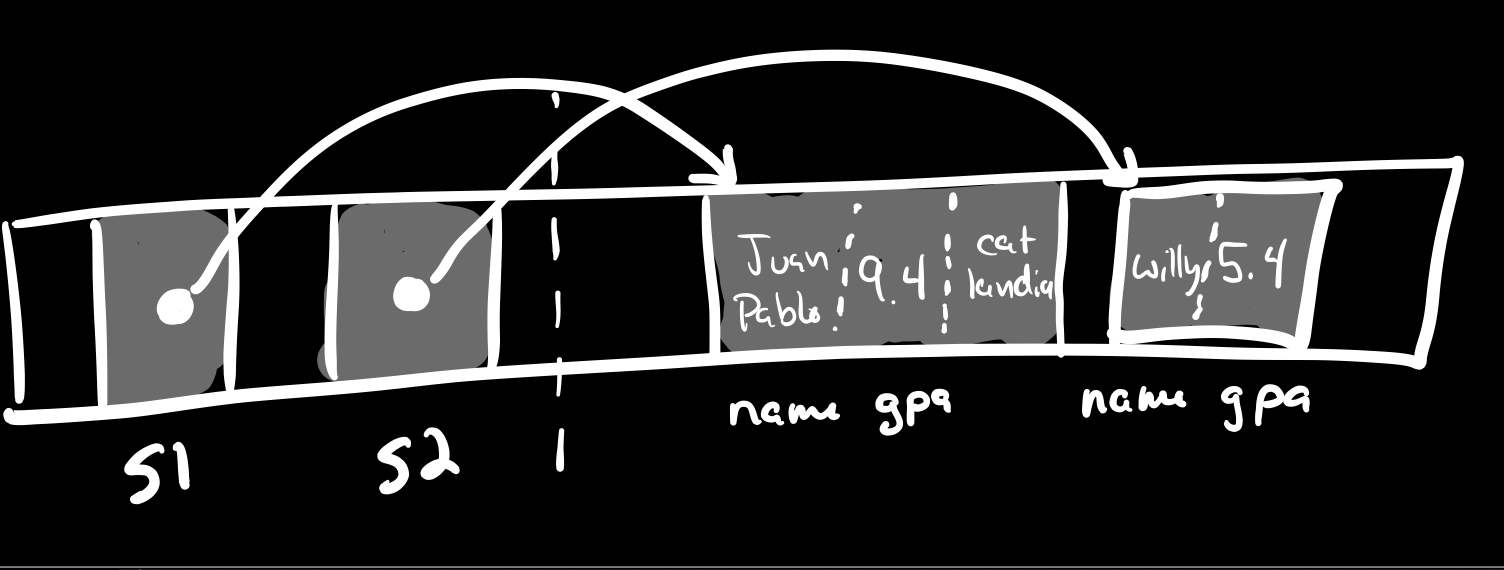 Juan
Pablo
9.4
cat
landia
willy
5.4
name gpa
name gpa
S1
S2